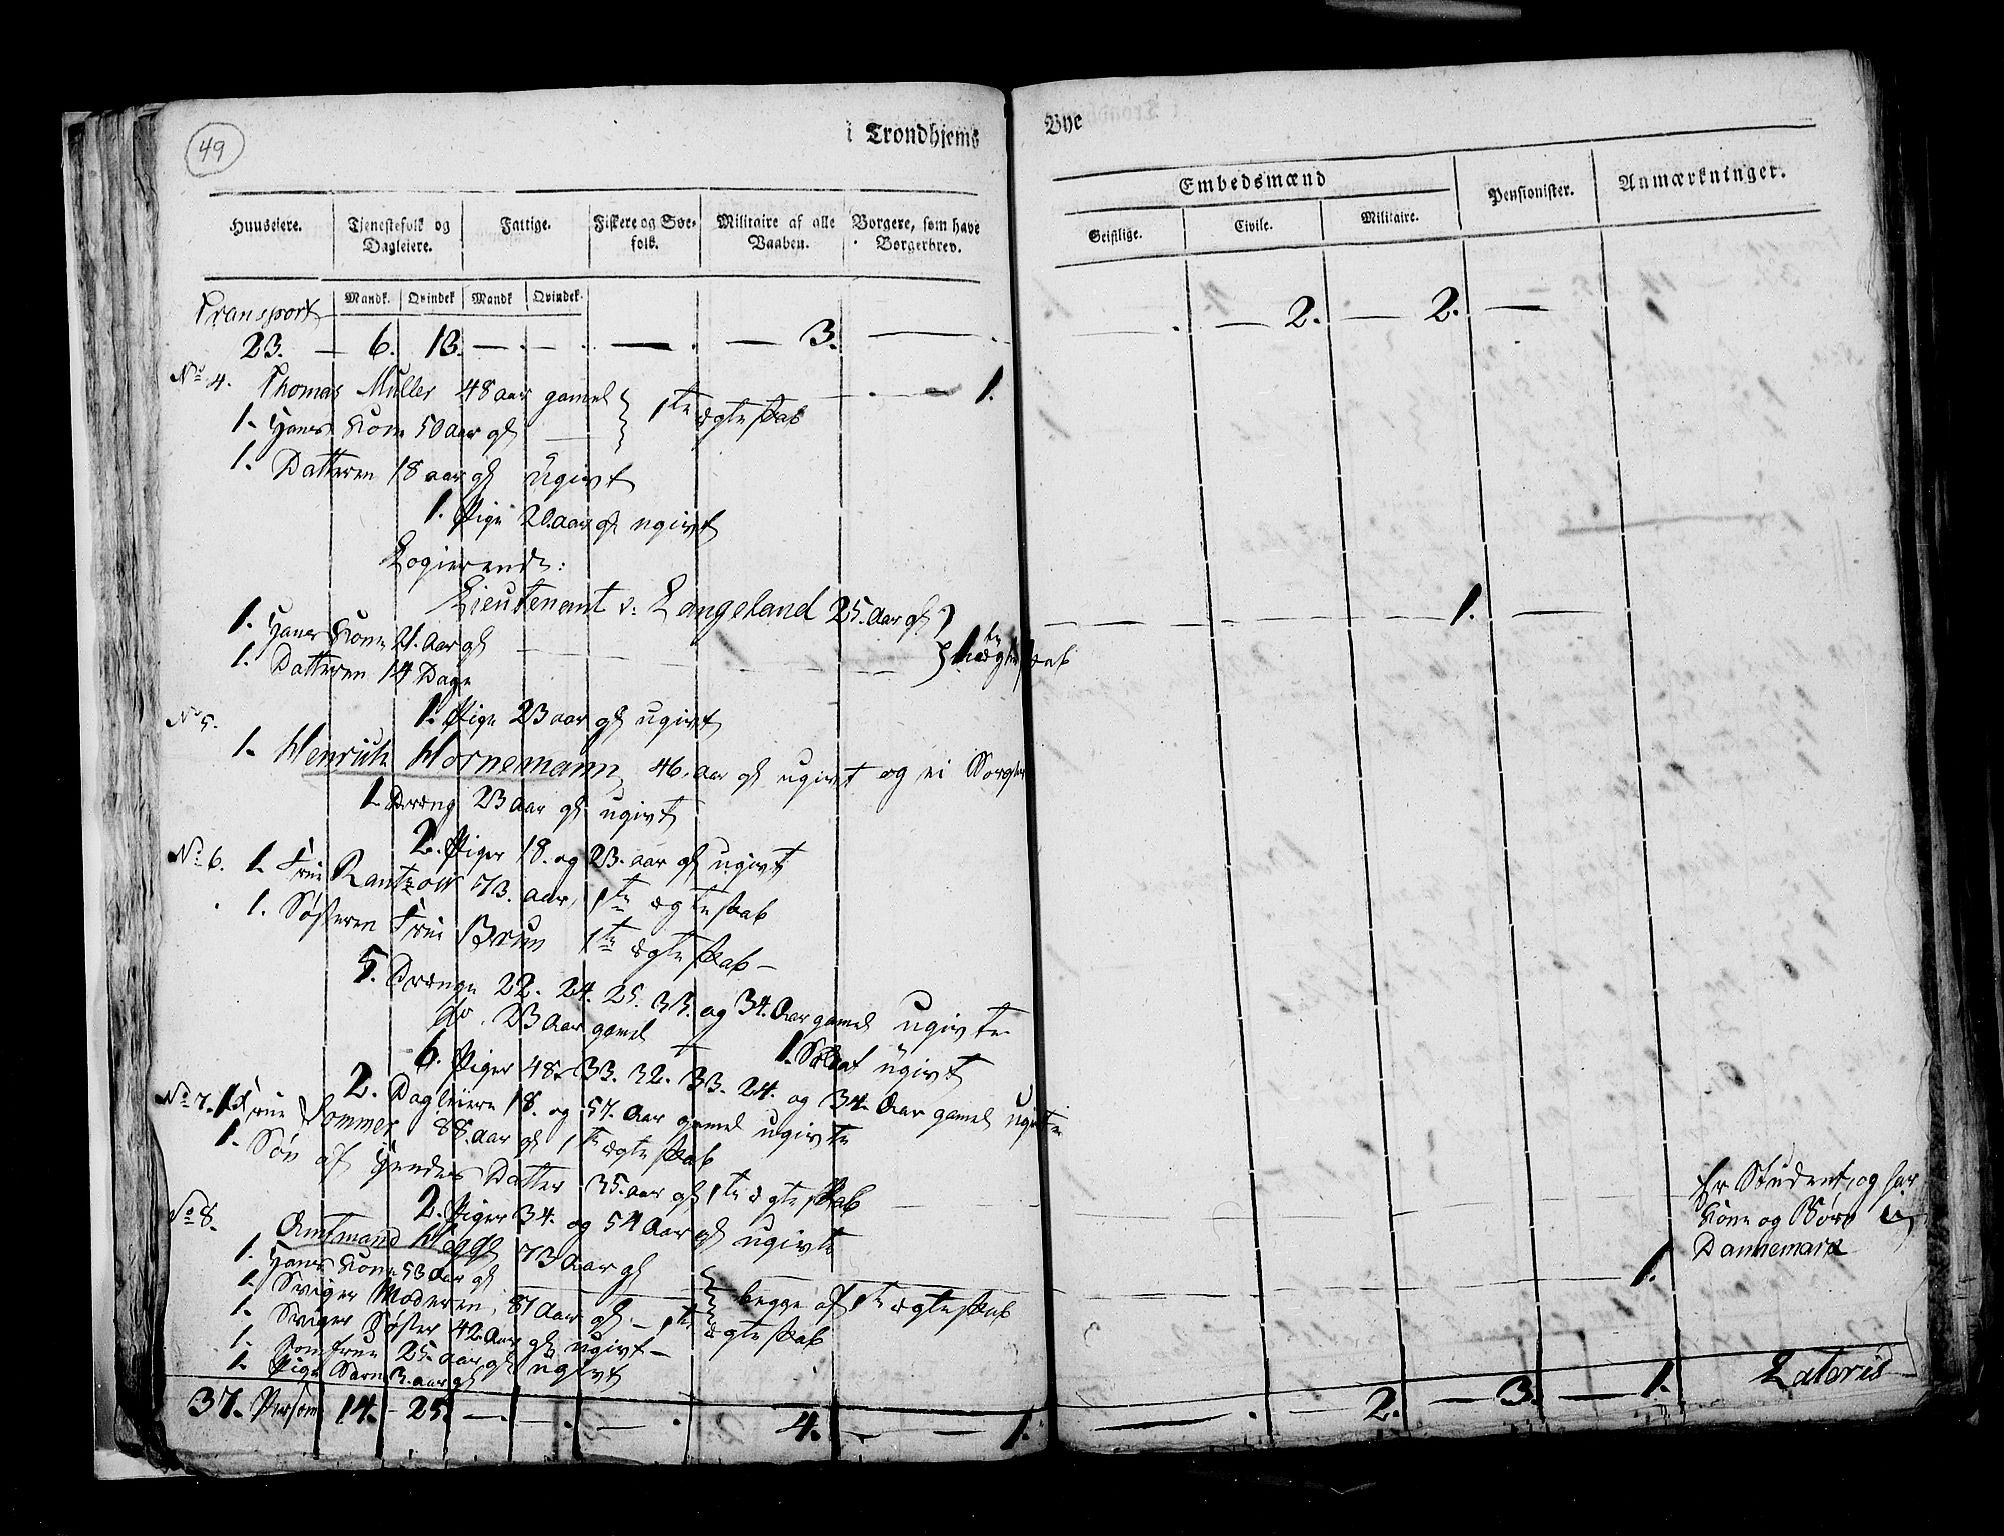 49
i Trondhjems Bye
Huuseiere. Tjenestefolk og Dagleiere. Fattige. Fiskere og Søefolk. Militaire af alle Vaaben. Borgere, som have Borgerbrev. Embedsmænd Pensionister. Anmærkninger.
Geistlige. Civile. Militaire.
Mandk. Qvindek Mandk Qvindek.
Transport
23. — 6. 13. — — — 3. — — 2. — 2. —
No 4. Thomas Müller 48 aar gamel } 1te ægteskab — 1.
1. Hans Kone 50 aar gl
1. Datteren 18 aar gl ugivt
1. Pige 20. aar gl ugivt
Logierende:
Lieutenant v: Langeland 25. aar gl } 1.
1. Hans Kone 21. aar gl — } 1te ægteskab
1. Datteren 14 Dage
1. Pige 23 aar gl ugivt
No 5.
1. Henrich Hornemann 46. aar gl ugivt og ei Borger
1 Dreng 23 aar gl ugivt
2. Piger 18. og 23. aar gl ugivt
No 6. 1. Frue Rantzow 73. aar, 1te ægteskab
1. Søsteren Frue Brun 1te ægteskab —
5. Drenge 22. 24. 25. 33. og 34. Aar gamel ugivte
do. 23 Aar gamel 1. Soldat ugivt
6. Piger 48. 33. 32. 33. 24. og 34. Aar gamel ugivte
2. Dagleiere 18. og 57. Aar gamel ugivte
No 7. 1 Frue Sommer 88. aar gl 1te ægteskab
1. Søn af Hendes Datter 35. aar gl 1te ægteskab
Er Student, og har Kone og Børn i Dannemark
2. Piger 34. og 54 Aar gl ugivte
No 8. Amtmand Hagge 73 Aar gl — 1.
1. Hans Kone 53 Aar gl } begge af 1te ægteskab
1. Sviger Moderen, 81 Aar gl — 1te ægteskab
1. Sviger Søster 42 Aar gl ugivt —
1. Jomfrue 25. aar gl ugivt
1. Pige Barn 3. aar gl
37. Person 14. — 25. — — — 4. — 1. — 2. — 3. — 1. Lateris